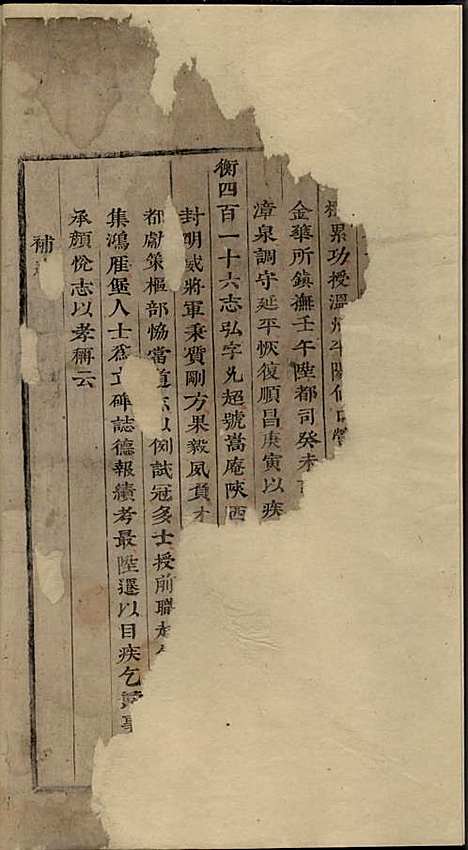 累功授溫州平陽
金華所鎮撫壬午陞都司癸未
漳泉調守延平恢復順昌庚寅以疾
衡四百一十六志弘字允超號嵩庵陝西
封明威將軍秉質剛方果毅夙負才
都獻策樞部恊當道以例試冠多士授前職
集鴻雁堡人士為立碑誌德報績考最陞遷以目疾乞
承顏悅志以孝稱云
補